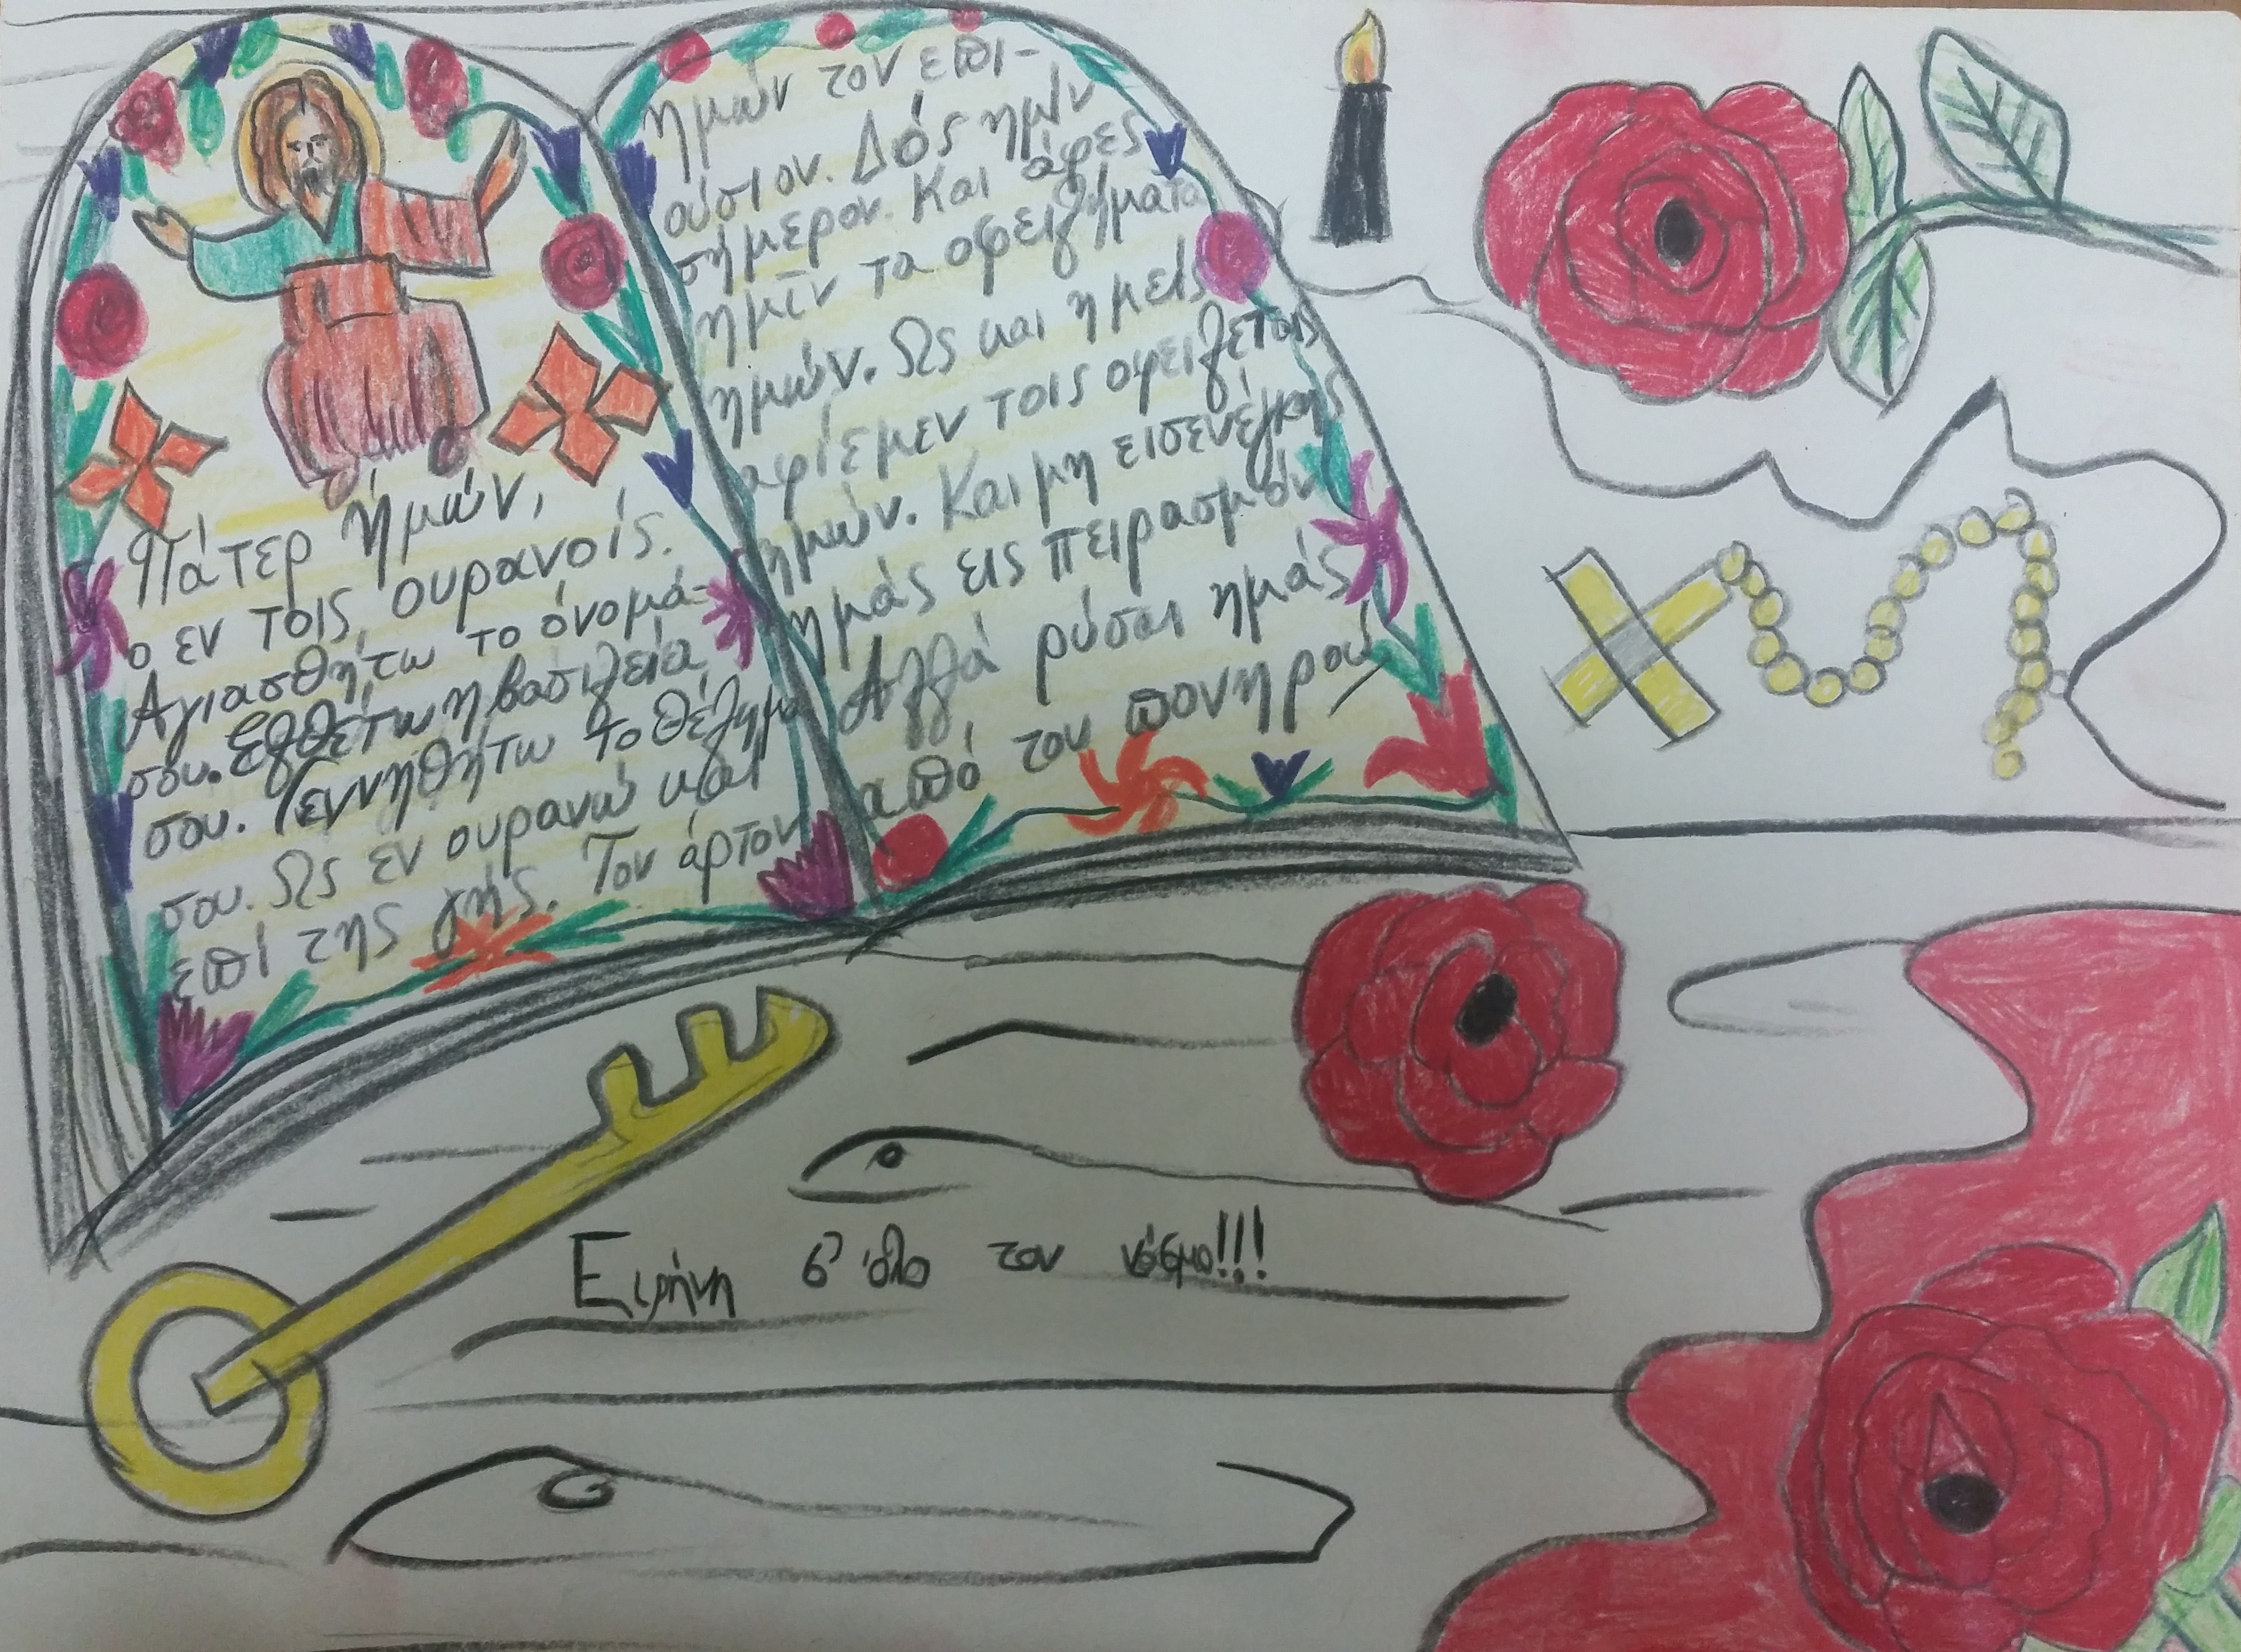 Πάτερ ἡμών,
ο εν τοις ουρανοίς.
Αγιασθήτω το όνομά-
σου. Ελθέτω η βασιλεία
σου. Γεννηθήτω το θέλημα
σου. Ως εν ουρανώ και
επί της γής. Τον άρτον
ημών τον επι-
ούσιον. Δός ημίν
σήμερον. Και άφες
ημίν τα οφειλήματα
ημών. Ως και ημείς
αφίεμεν τοις οφειλέταις
ημών. Και μη εισενέγκης
ημάς εις πειρασμόν
Αλλά ρύσαι ημάς
από του πονηρού
Ειρήνη σ' όλο τον κόσμο!!!